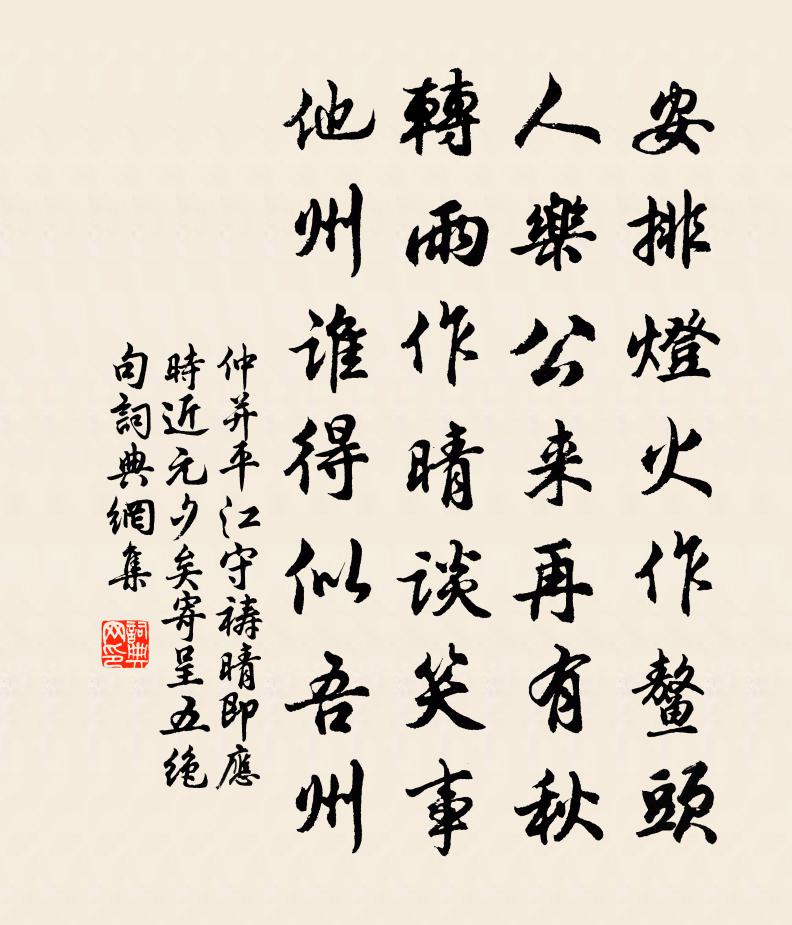 安排燈火作鼇頭
人樂公来再有秋
轉雨作晴談笑事
他州誰得似吾州
仲并平江守禱晴即應
時近元夕矣寄呈五绝
句詞典網集
詞典网印